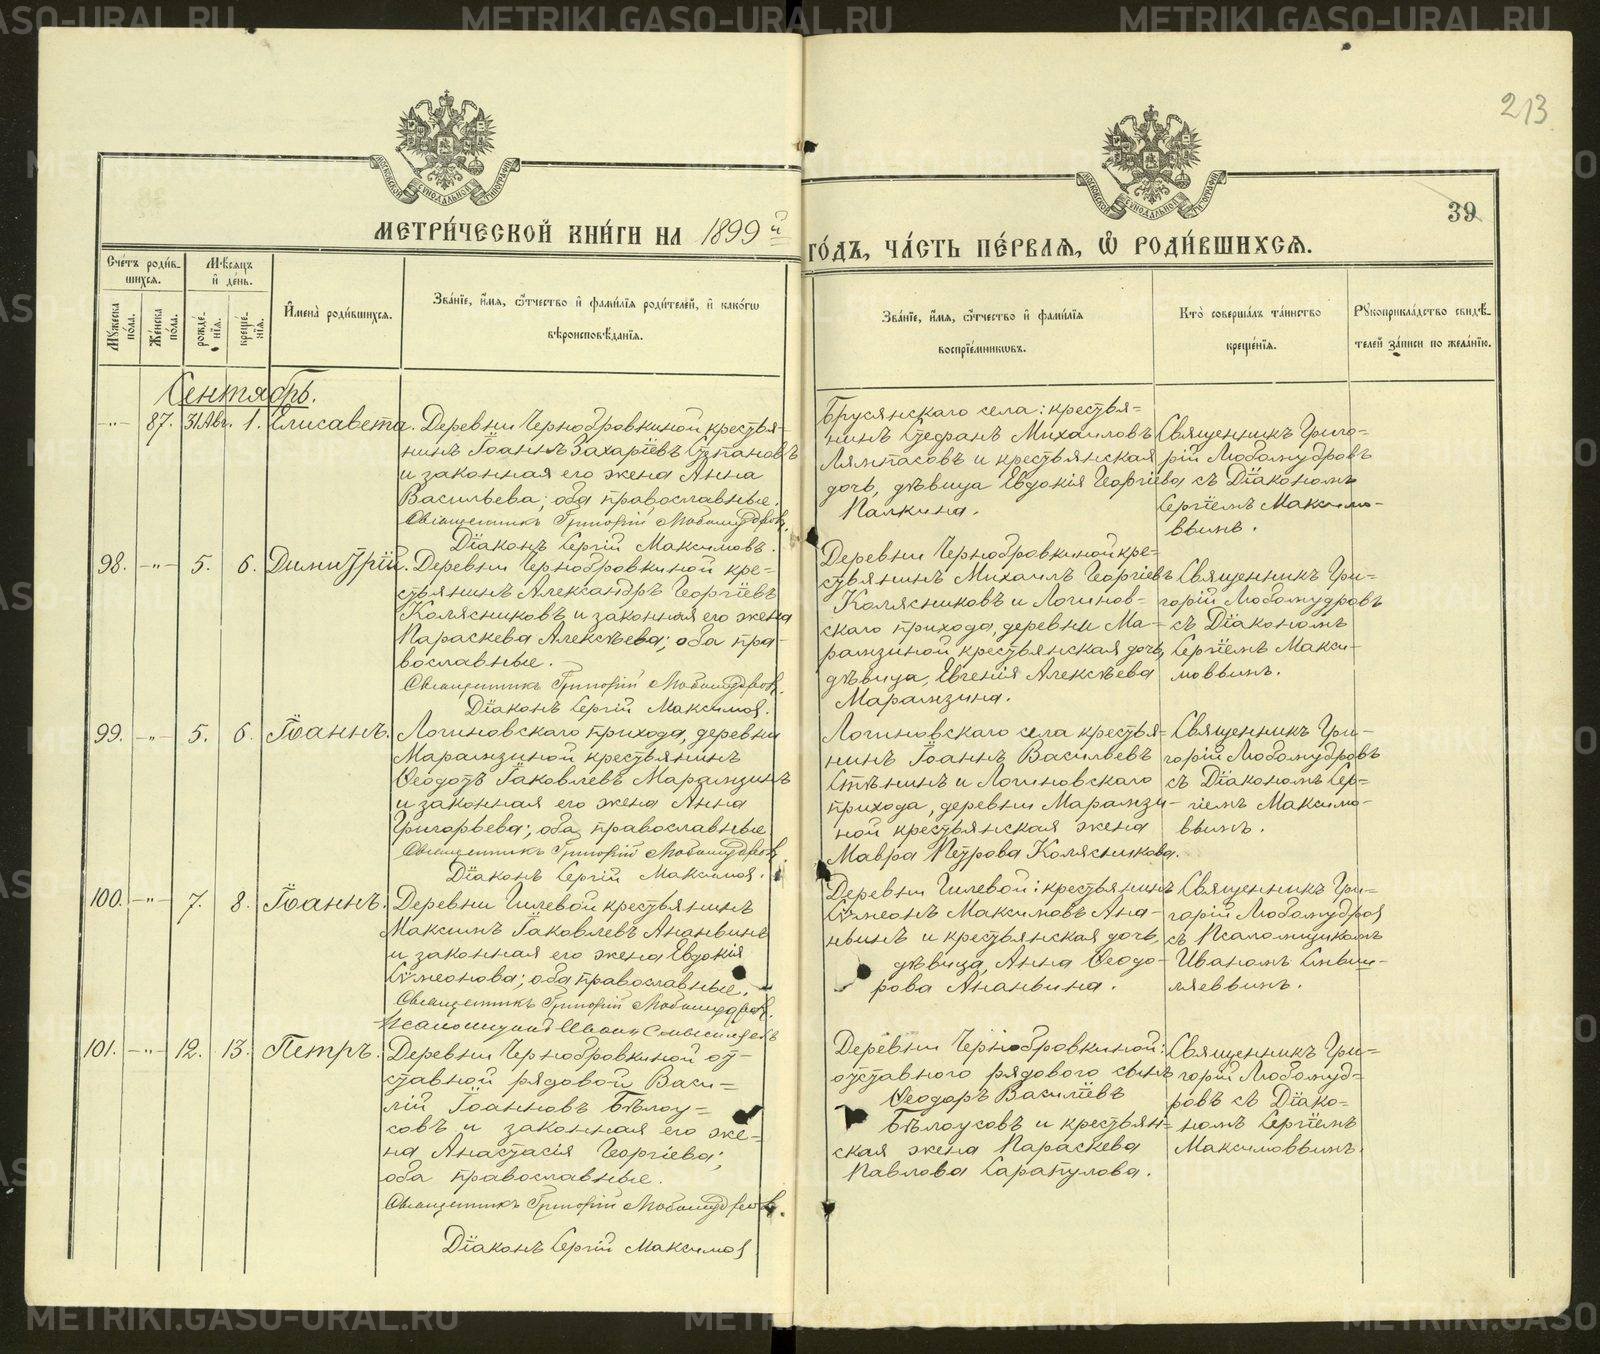 METRIKI.GASO-URAL.RU
213
39
МЕТРИ́ЧЕСКОЙ КНИ́ГИ НА 1899 й
ГО́ДЪ, ЧА́СТЬ ПЕ́РВАЯ, Ѽ РОДИ́ВШИХСЯ.
Сче́тъ роди́в-
шихся.
Мѣсяцъ
и҆ де́нь.
Мꙋжеска
по́ла.
Же́нска
по́ла.
рожде́-
нїя.
креще́-
нїя.
И҆мена̀ роди́вшихся.
Зва́нїе, и҆́мя, ѻ҆́тчество и҆ фами́лїя роди́телей, и҆ како́гѡ
вѣроисповѣ́данїя.
Зва́нїе, и҆́мя, ѻ҆́тчество и҆ фами́лїя
воспрїе́мникѡвъ.
Кто̀ соверша́лъ та́инство
креще́нїя.
Рꙋкоприкла́дство свидѣ́-
телей за́писи по жела́нїю.
Сентябрь.
-"- 87. 31 Авг. 1. Елисавета.
Деревни Чернобровкиной крестья-
нинъ Іоаннъ Захаріевъ Степановъ
и законная его жена Анна
Васильева; оба православные.
Священникъ Григорій Любомудровъ.
Діаконъ Сергій Максимовъ.
Брусянскаго села: крестья-
нинъ Стефанъ Михаиловъ
Лямпасовъ и крестьянская
дочь, дѣвица Евдокія Георгіева
Палкина.
Священникъ Григо-
рій Любомудровъ
съ Діакономъ
Сергіемъ Максимо-
вымъ.
98. -"- 5. 6. Димитрій.
Деревни Чернобровкиной кре-
стьянинъ Александръ Георгіевъ
Колясниковъ и законная его жена
Параскева Алексѣева; оба пра-
вославные.
Священникъ Григорій Любомудровъ.
Діаконъ Сергій Максимовъ.
Деревни Чернобровкиной кре-
стьянинъ Михаилъ Георгіевъ
Колясниковъ и Логинов-
скаго прихода, деревни Ма-
рамзиной крестьянская дочь,
дѣвица, Евгенія Алексѣева
Марамзина.
Священникъ Гри-
горій Любомудровъ
съ Діакономъ
Сергіемъ Макси-
мовымъ.
99. -"- 5. 6. Іоаннъ.
Логиновскаго прихода, деревни
Марамзиной крестьянинъ
Ѳеодотъ Іаковлевъ Марамзинъ
и законная его жена Анна
Григорьева; оба православные.
Священникъ Григорій Любомудровъ.
Діаконъ Сергій Максимовъ.
Логиновскаго села крестья-
нинъ Іоаннъ Васильевъ
Стѣнинъ и Логиновскаго
прихода, деревни Марамзи-
ной крестьянская жена
Мавра Петрова Колясникова.
Священникъ Гри-
горій Любомудровъ
съ Діакономъ Сер-
гіемъ Максимо-
вымъ.
100. -"- 7. 8. Іоаннъ.
Деревни Гилевой крестьянинъ
Максимъ Іаковлевъ Ананьинъ
и законная его жена Евдокія
Сѵмеонова; оба православные.
Священникъ Григорій Любомудровъ.
Псаломщикъ Иванъ Смышляевъ
Деревни Гилевой: крестьянинъ
Сѵмеонъ Максимовъ Ана-
ньинъ и крестьянская дочь,
дѣвица, Анна Ѳеодо-
рова Ананьина.
Священникъ Гри-
горій Любомудровъ
съ Псаломщикомъ
Иваномъ Смыш-
ляевымъ.
101. -"- 12. 13. Петръ.
Деревни Чернобровкиной от-
ставной рядовой Васи-
лій Іоанновъ Бѣлоу-
совъ и законная его же-
на Анастасія Георгіева;
оба православные.
Священникъ Григорій Любомудровъ.
Діаконъ Сергій Максимовъ
Деревни Чернобровкиной:
отставного рядового сынъ
Ѳеодоръ Василіевъ
Бѣлоусовъ и крестьян-
ская жена Параскева
Павлова Сарапулова.
Священникъ Гри-
горій Любомуд-
ровъ съ Діако-
номъ Сергіемъ
Максимовымъ.